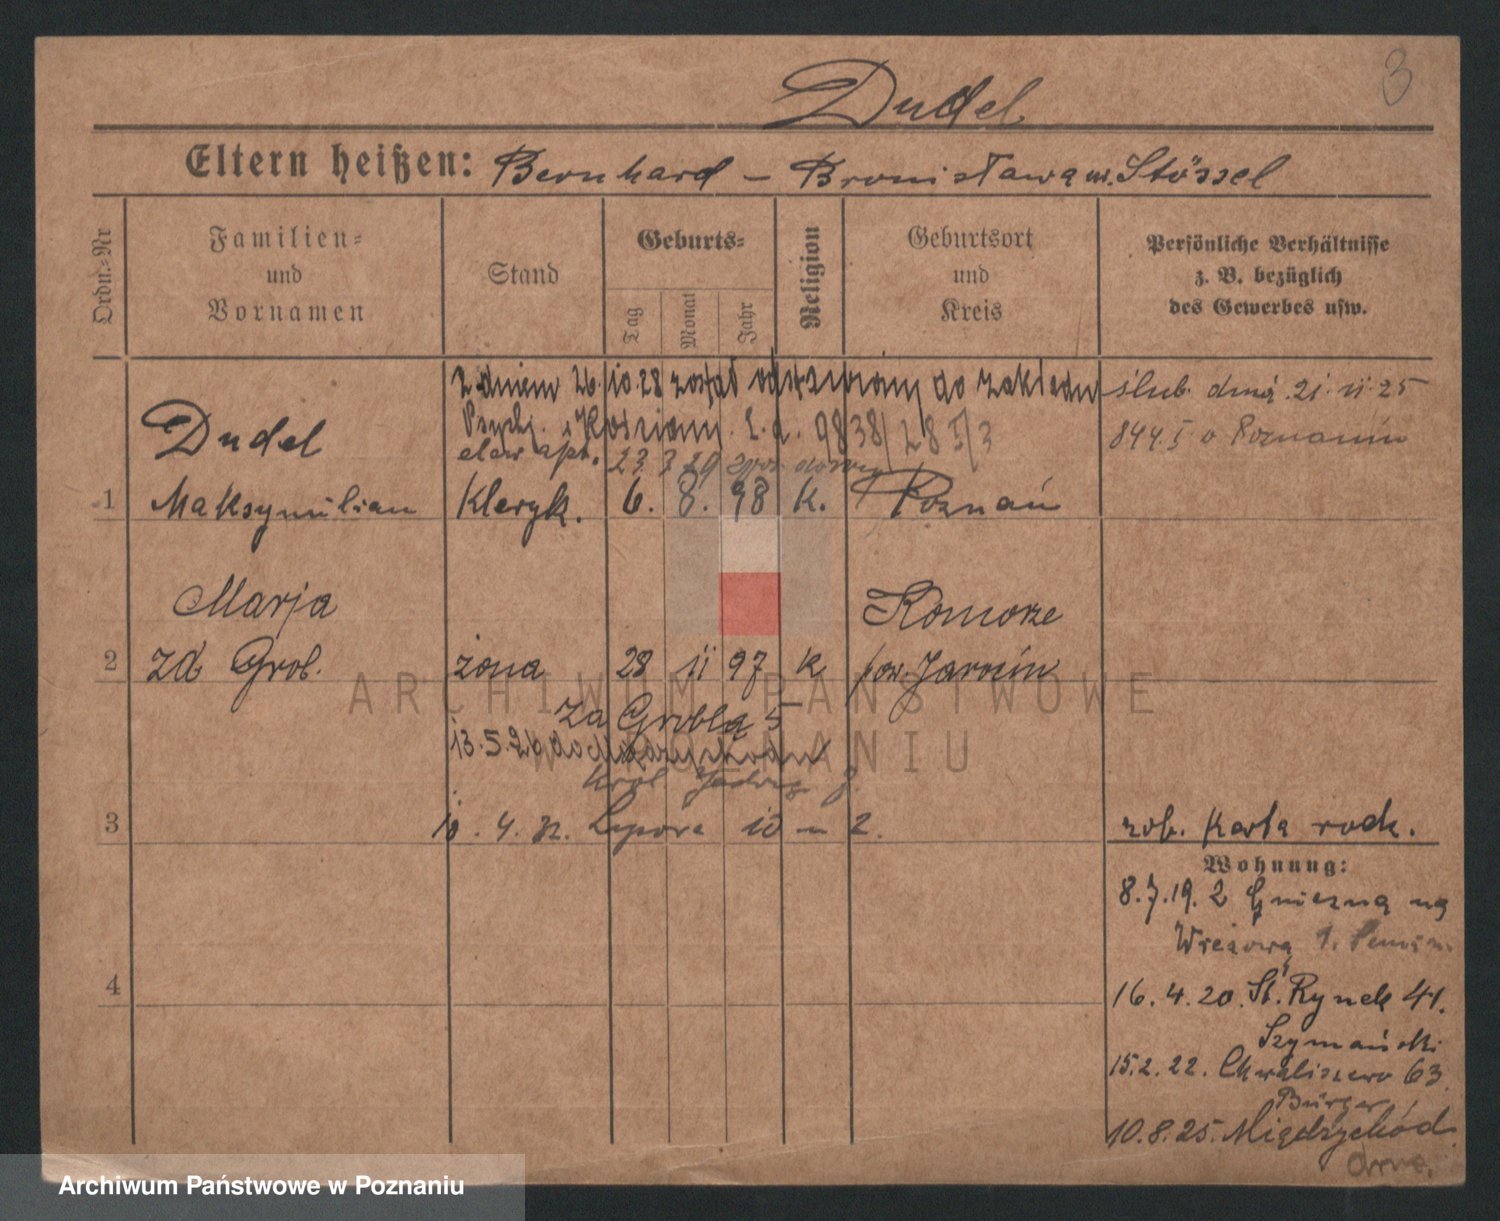 3
Dudel
Eltern heißen: Bernhard – Bronisława ur. Stössel
Ordn.=Nr
Familien=
und
Vornamen
Stand
Geburts=
Tag
Monat
Jahr
Religion
Geburtsort
und
Kreis
Persönliche Verhältnisse
z. B. bezüglich
des Gewerbes usw.
Z dniem 26.10.28 został odstawiony do zakładu
Psych. 9838/28 I/3
ślub. dnia 21.11.25
844.5 Poznaniu
Dudel
elew apt. 23 7 29
1 Maksymilian Kleryk. 6. 8. 98 K. Poznań
Marja Komorze
2 zd Grol. żona 28 11 97 K pow. Jarocin
Za Groblą 5
13.5.26 do
Król
3 10.4.32. 10 m 2. zob. Karta rodz.
Wohnung:
8.7.19. Z Gniezna na
Wieżową 1.
4
16.4.20. St. Rynek 41.
Szymański
15.2.22. Chwaliszewo 63.
Bürger
10.8.25. Międzychód.
ARCHIWUM PAŃSTWOWE
W POZNANIU
Archiwum Państwowe w Poznaniu